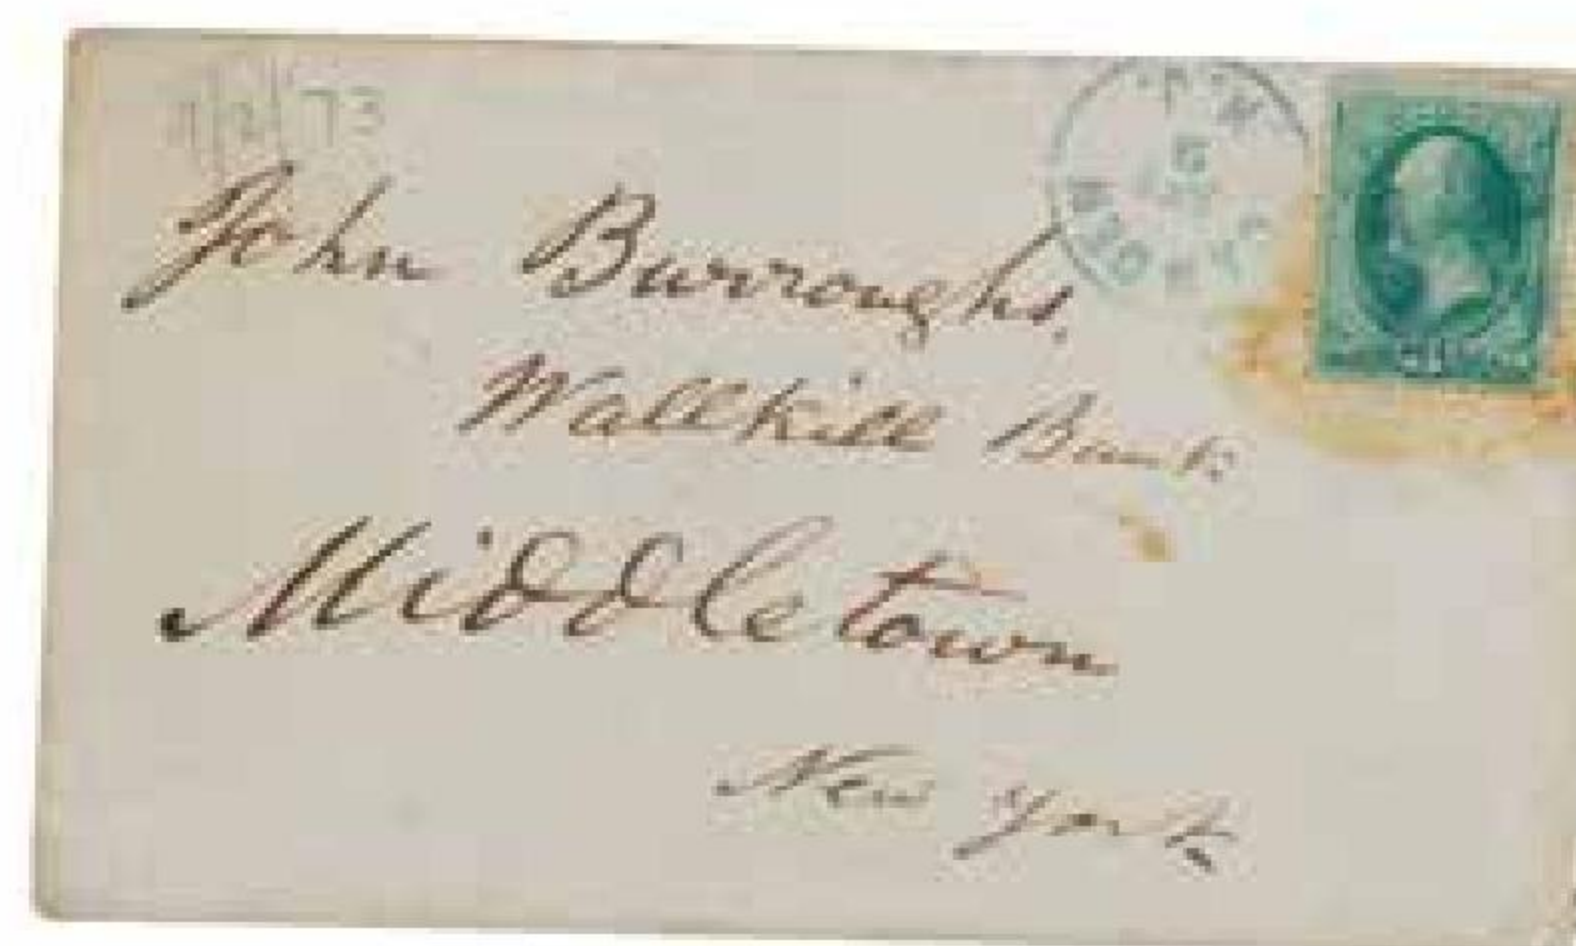 73
John Burroughs.
Wallkill Bank.
Middletown
New York